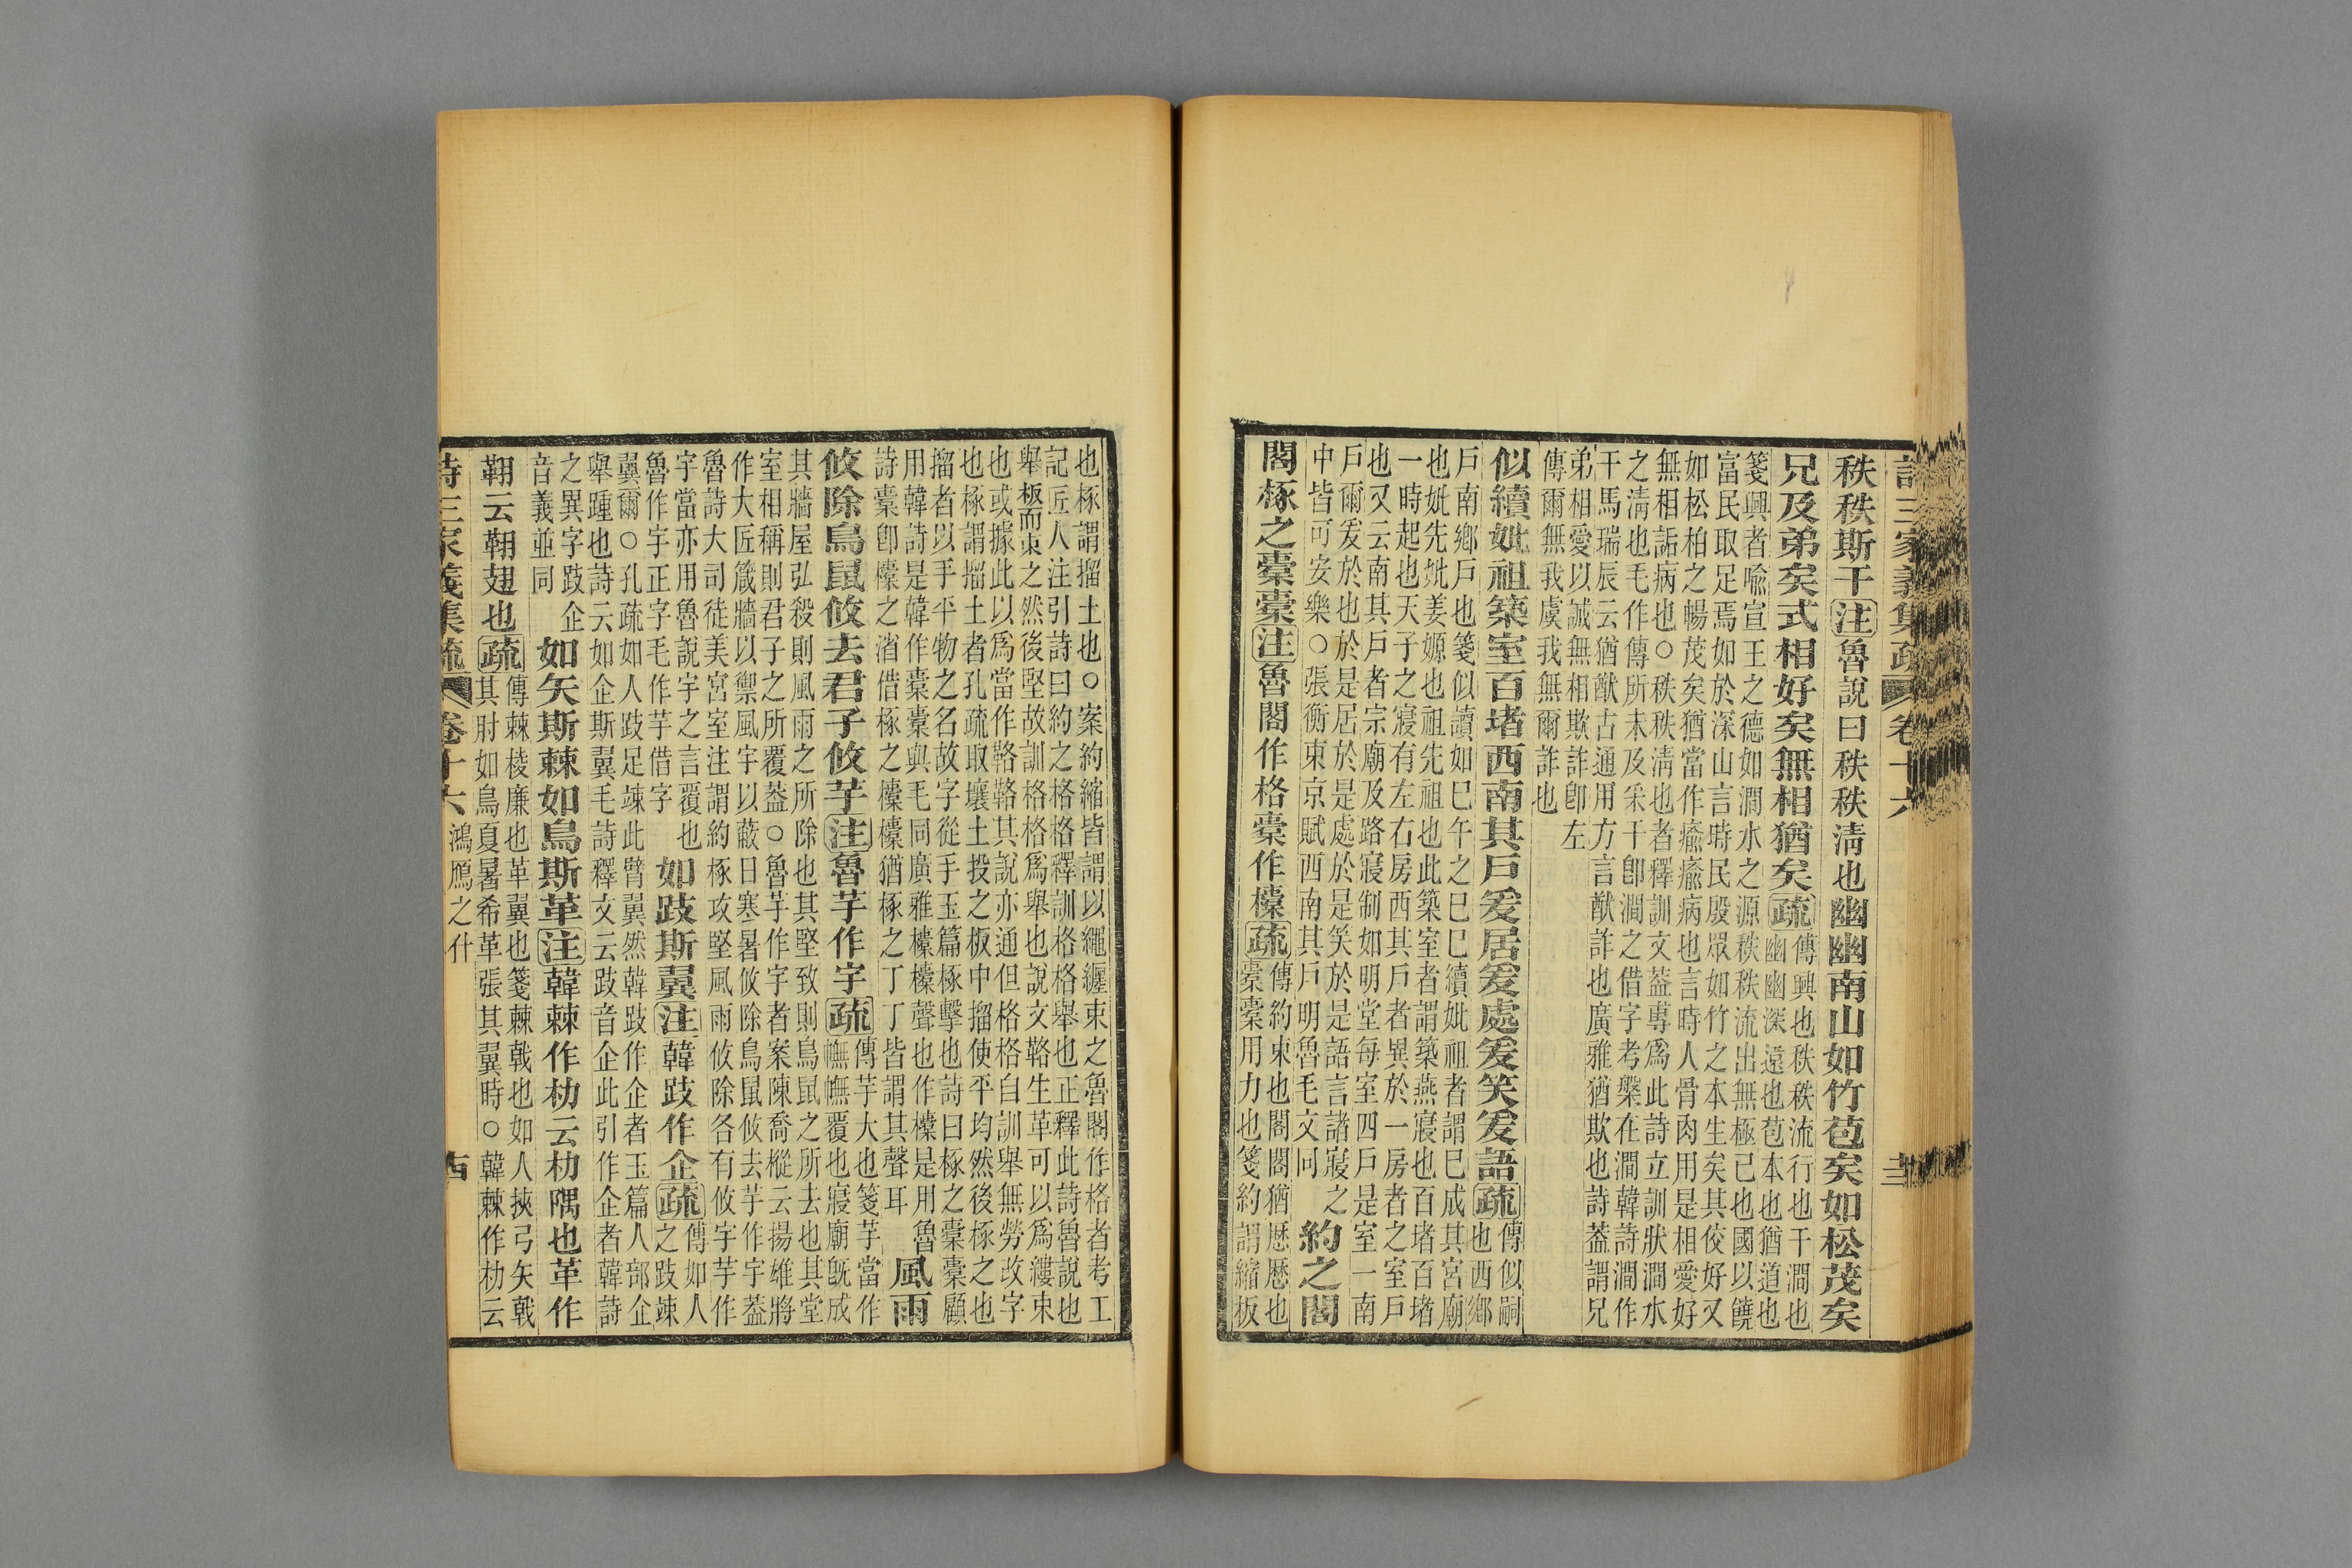 詩三家義集疏 卷十六
秩秩斯干注魯說曰秩秩清也幽幽南山如竹苞矣如松茂矣
兄及弟矣式相好矣無相猶矣疏
傳興也秩秩流行也干澗也
幽幽深遠也苞本也猶道也
箋興者喻宣王之德如澗水之源秩秩流出無極已也國以饒
富民取足焉如於深山言時民殷眾如竹之本生矣其佼好又
如松柏之暢茂矣猶當作瘉瘉病也言時人骨肉用是相愛好
無相詬病也○秩秩清也者釋訓文葢專爲此詩立訓狀澗水
之清也毛作傳所未及采干卽澗之借字考槃在澗韓詩澗作
干馬瑞辰云猶猷古通用方言猷詐也廣雅猶欺也詩葢謂兄
弟相愛以誠無相欺詐卽左
傳爾無我虞我無爾詐也
似續妣祖築室百堵西南其戶爰居爰處爰笑爰語疏
傳似嗣
也西鄉
戶南鄉戶也箋似讀如巳午之巳巳續妣祖者謂巳成其宮廟
也妣先妣姜嫄也祖先祖也此築室者謂築燕寢也百堵百堵
一時起也天子之寢有左右房西其戶者異於一房者之室戶
也又云南其戶者宗廟及路寢制如明堂每室四戶是室一南
戶爾爰於也於是居於是處於是笑於是語言諸寢之
中皆可安樂○張衡東京賦西南其戶明魯毛文同
約之閣
閣椓之橐橐注魯閣作格橐作㯓疏
傳約束也閣閣猶歷歷也
橐橐用力也箋約謂縮板
也椓謂㨨土也○案約縮皆謂以繩纏束之魯閣作格者考工
記匠人注引詩曰約之格格釋訓格格舉也正釋此詩魯說也
舉板而束之然後堅故訓格格爲舉也說文䩐生革可以爲縷束
也或據此以爲當作䩐䩐其說亦通但格格自訓舉無勞改字
也椓謂㨨土者孔疏取壤土投之板中㨨使平均然後椓之也
㨨者以手平物之名故字從手玉篇椓擊也詩曰椓之橐橐顧
用韓詩是韓作橐橐與毛同廣雅㯓㯓聲也作㯓是用魯
詩橐卽㯓之渻借椓之㯓㯓猶椓之丁丁皆謂其聲耳
風雨
攸除鳥鼠攸去君子攸芋注魯芋作宇疏
傳芋大也箋芋當作
幠幠覆也寢廟旣成
其牆屋弘殺則風雨之所除也其堅致則鳥鼠之所去也其堂
室相稱則君子之所覆葢○魯芋作宇者案陳喬樅云揚雄將
作大匠箴牆以禦風宇以蔽日寒暑攸除鳥鼠攸去芋作宇葢
魯詩大司徒美宮室注謂約椓攻堅風雨攸除各有攸宇芋作
宇當亦用魯說宇之言覆也
魯作宇正字毛作芋借字
如跂斯翼注韓跂作企疏
傳如人
之跂竦
翼爾○孔疏如人跂足竦此臂翼然韓跂作企者玉篇人部企
舉踵也詩云如企斯翼毛詩釋文云跂音企此引作企者韓詩
之異字跂企
音義並同
如矢斯棘如鳥斯革注韓棘作朸云朸隅也革作
䩑云䩑翅也疏
傳棘棱廉也革翼也箋棘戟也如人挾弓矢戟
其肘如鳥夏暑希革張其翼時○韓棘作朸云
詩三家義集疏 卷十六 鴻鴈之什